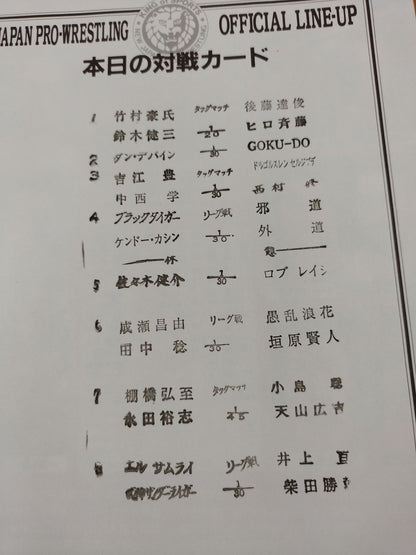 JAPAN PRO-WRESTLING OFFICIAL LINE-UP
KING OF SPORTS
本日の対戦カード
1 竹村豪氏 タッグマッチ 後藤達俊
鈴木健三 1/20 ヒロ斉藤
2 ダン・デバイン 1/30 GOKU-DO
3 吉江豊 タッグマッチ
中西学 1/30 西村
4 ブラックタイガー リーグ戦 邪道
ケンドー・カシン 1/30 外道
休
5 佐々木健介 1/30 ロブ レイジ
6 成瀬昌由 リーグ戦 愚乱浪花
田中稔 1/30 垣原賢人
7 棚橋弘至 タッグマッチ 小島聡
永田裕志 1/45 天山広吉
8 エル サムライ リーグ戦 井上亘
サンダーライガー 1/30 柴田勝